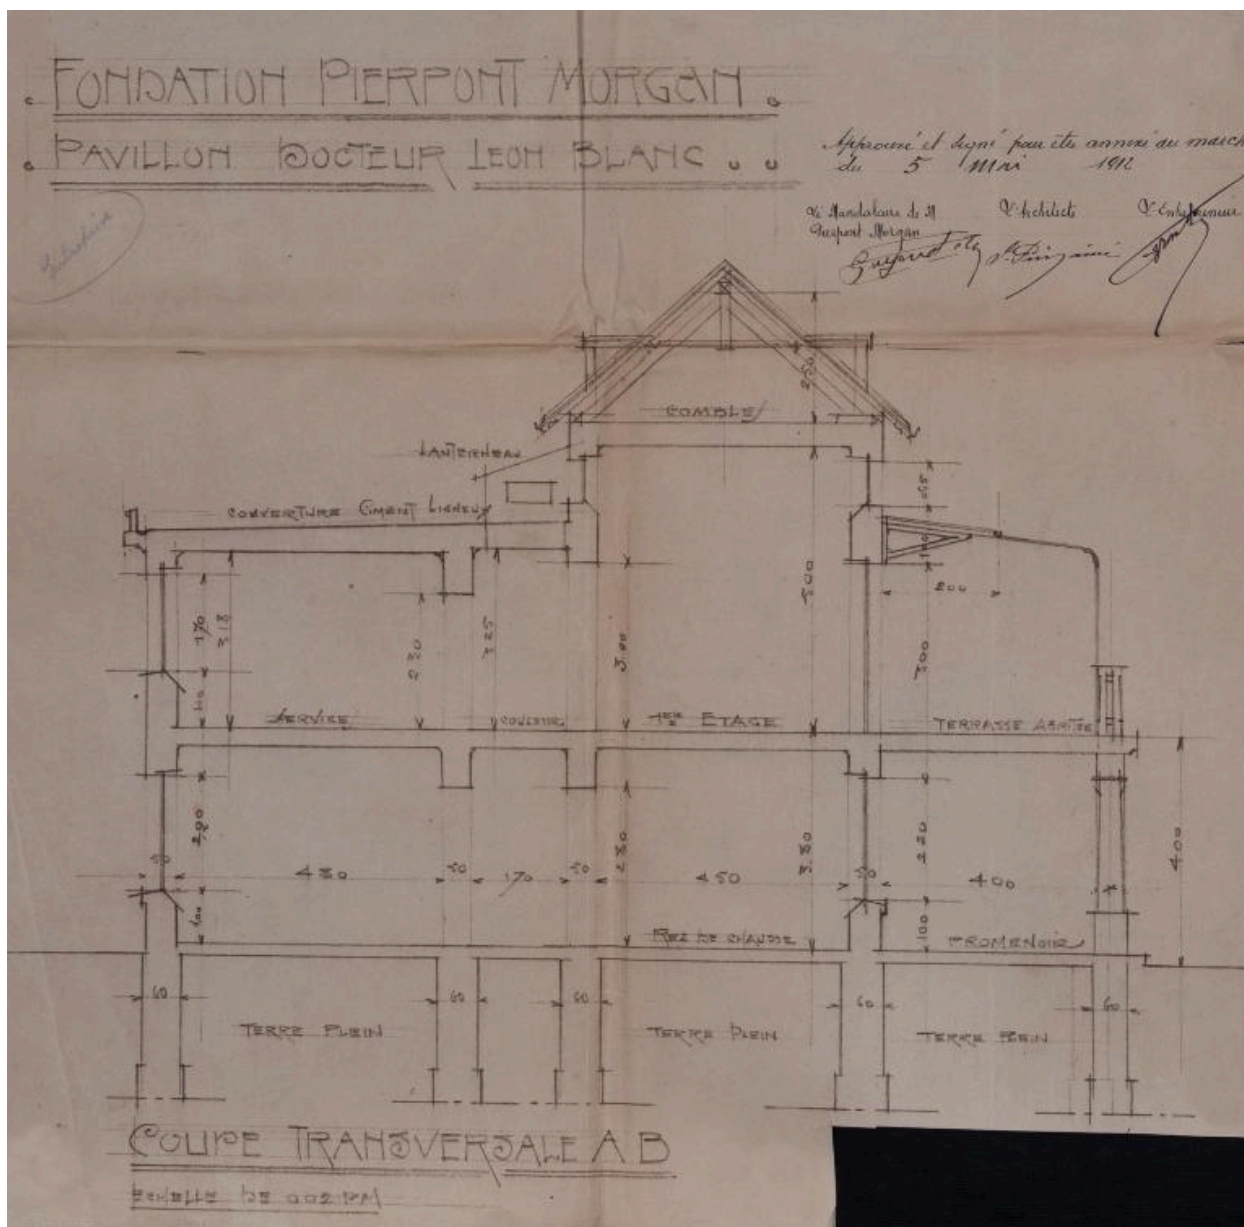 FONDATION PIERPONT MORGAN.
PAVILLON DOCTEUR LEON BLANC
Approuvé et signé pour être annexé au march
du 5 Mai 1912
Le Mandataire de M
Pierpont Morgan
L'Architecte
L'Entrepreneur
250
COMBLE
LANTERNEAU
COUVERTURE CIMENT LIGNEUX
100
200
170
318
230
325
300
500
300
110
SERVICE
COULOIR
1ER ETAGE
TERRASSE ABRITÉE
200
280
3.80
220
400
50
430
50
170
50
450
50
400
100
100
REZ DE CHAUSSE
PROMENOIR
60
60
60
60
60
TERRE PLEIN
TERRE PLEIN
TERRE PLEIN
COUPE TRANSVERSALE A B
ECHELLE DE 002 PM